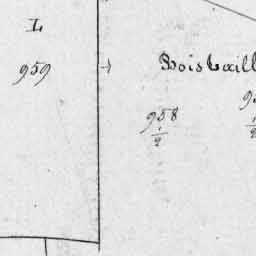 L
959
Boistaill
958
1/2